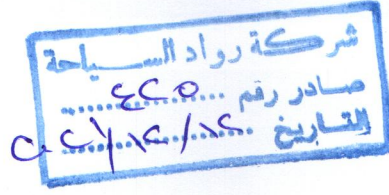 شركة رواد السياحة
صادر رقم ٤٢٥
التاريخ ٢٠٢١/١٢/١٢